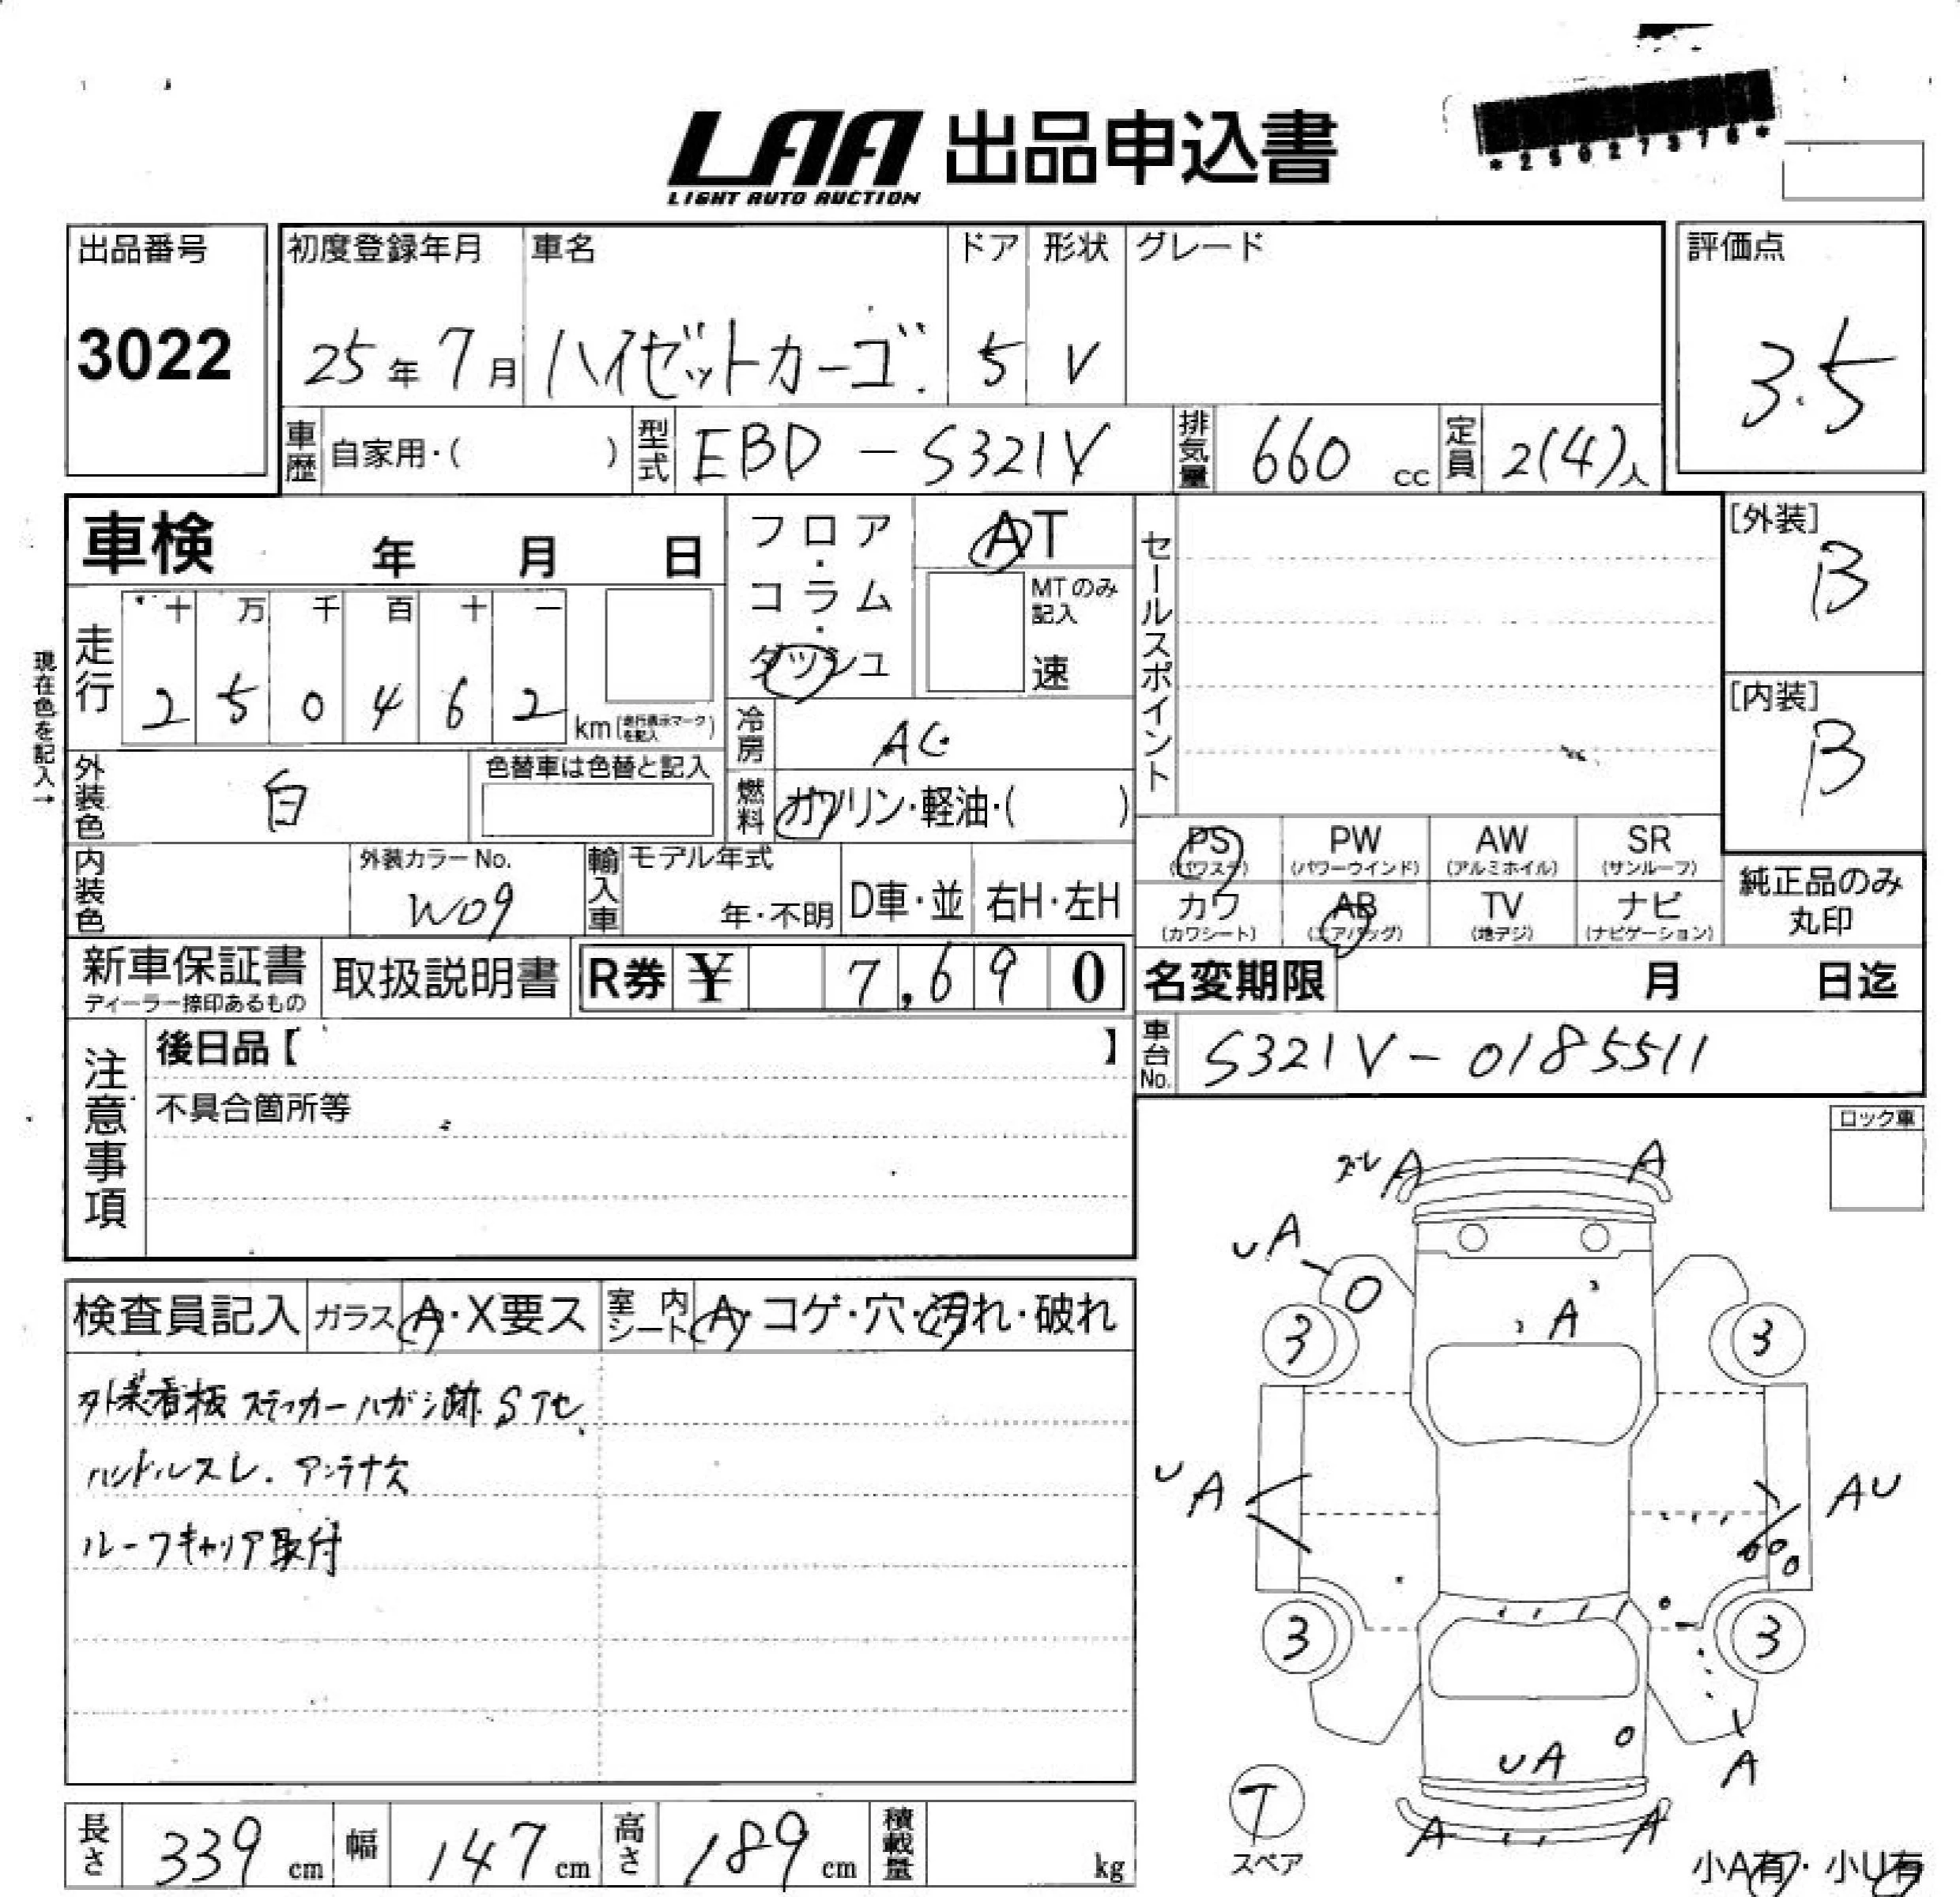 LAA 出品申込書
LIGHT AUTO AUCTION
*25027376*
出品番号 初度登録年月 車名 ドア 形状 グレード 評価点
3022 25年 7月 ハイゼットカーゴ 5 V 3.5
車歴 自家用・( ) 型式 EBD-S321V 排気量 660 cc 定員 2(4)人
車検 年 月 日
フロア・コラム・ダッシュ
AT
MTのみ記入
速
セールスポイント
[外装]
B
[内装]
B
現在色を記入→
走行 十 万 千 百 十 一
2 5 0 4 6 2 km(走行表示マークを記入)
冷房 AC
外装色 白 色替車は色替と記入
燃料 ガソリン・軽油・( )
PS PW AW SR
(パワステ) (パワーウインド) (アルミホイル) (サンルーフ)
カワ AB TV ナビ
(カワシート) (エアバッグ) (地デジ) (ナビゲーション)
純正品のみ
丸印
内装色 外装カラーNo. W09 輸入車 モデル年式 年・不明 D車・並 右H・左H
新車保証書 取扱説明書 R券 ¥ 7,690
ディーラー捺印あるもの
名変期限 月 日迄
注意事項
後日品【 】
車台No. S321V-0185511
不具合箇所等
ロック車
検査員記入 ガラス A・X要ス 室内シート A・コゲ・穴・汚れ・破れ
外装看板 ステッカーハガシ跡 S
ハンドルスレ. アンテナ欠
ルーフキャリア取付
ズレ A A
UA
A
3 3
UA AU
3 3
UA A
T
スペア
A A
小A有・小U有
長さ 339 cm 幅 147 cm 高さ 189 cm 積載量 kg